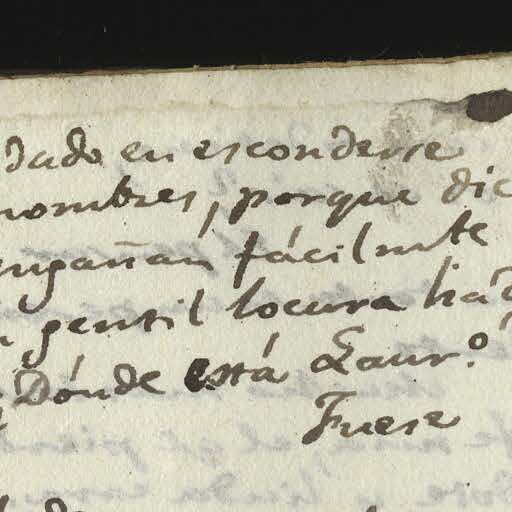 dado en esconderse
hombres, porque dic
engañan fácilmte
gentil locura há
¿Dónde está Laur.º
Fuese